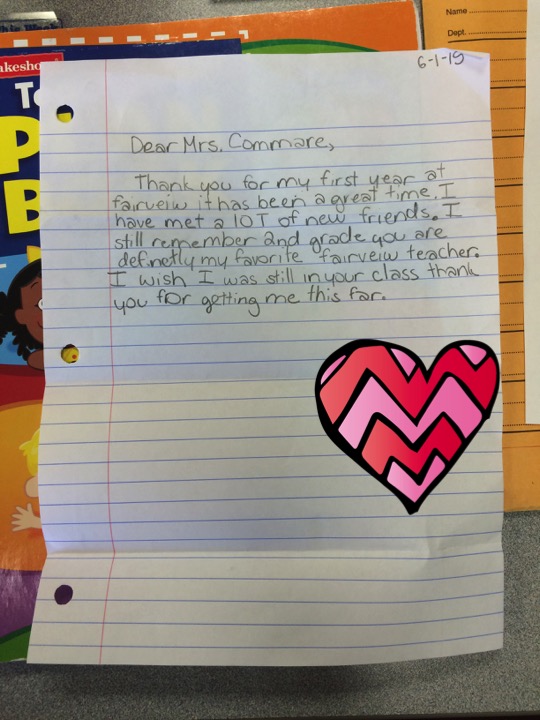 Name
Dept.
akesho
To
P
B
6-1-15
Dear Mrs. Commare,
Thank you for my first year at
fairveiw it has been a great time. I
have met a lOT of new friends. I
still remember 2nd grade you are
definetly my favorite fairveiw teacher.
I wish I was still in your class thank
you for getting me this far.